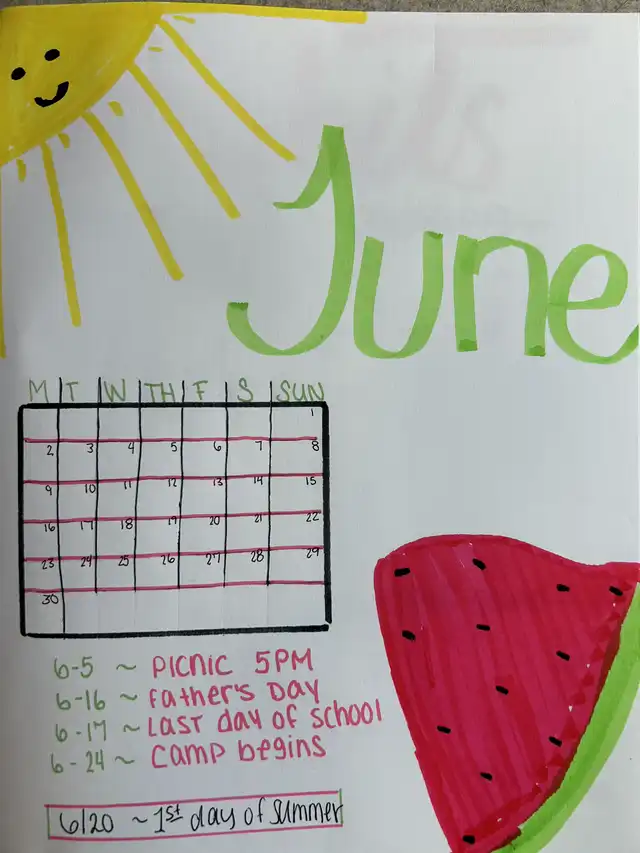 June
M T W TH F S SUN
1
2 3 4 5 6 7 8
9 10 11 12 13 14 15
16 17 18 19 20 21 22
23 24 25 26 27 28 29
30
6-5 ~ PICNIC 5PM
6-16 ~ Father's Day
6-17 ~ Last day of school
6-24 ~ Camp begins
6/20 ~ 1st day of summer